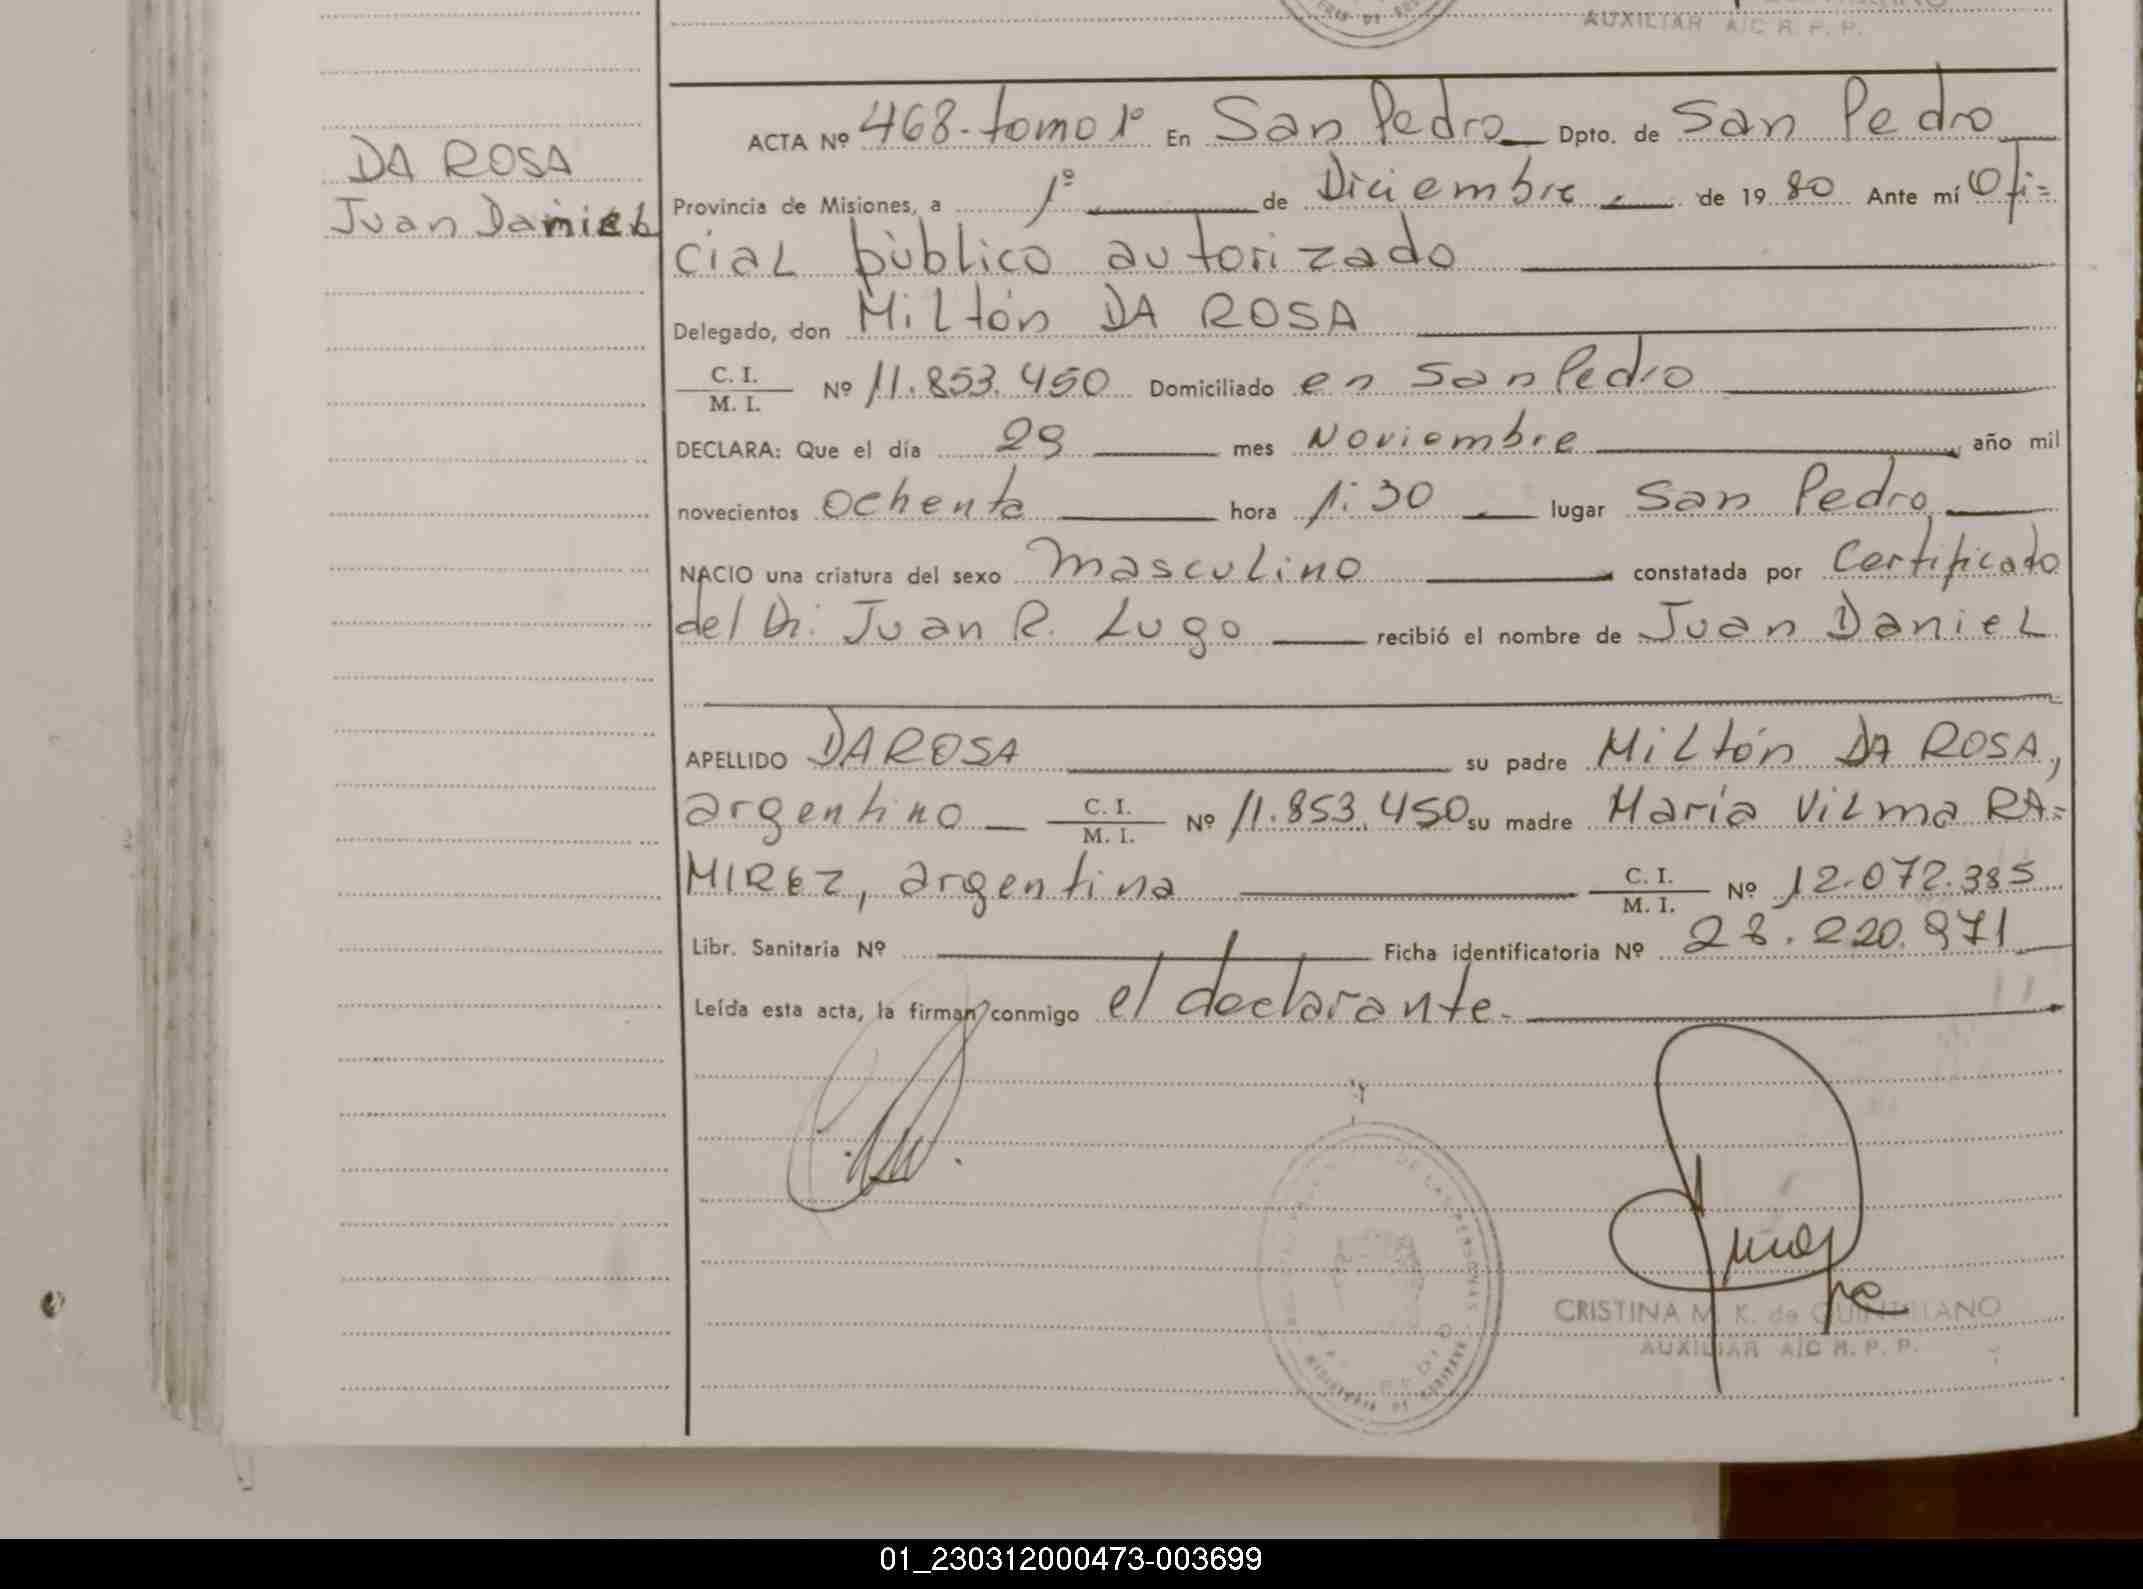 AUXILIAR A/C R. P. P.
DA ROSA
Juan Daniel
ACTA Nº 468.tomo 1º En San Pedro Dpto. de San Pedro
Provincia de Misiones, a 1º de Diciembre de 19 80 Ante mí Ofi=
cial público autorizado
Delegado, don Miltón DA ROSA
C. I.
M. I. Nº 11.853.450 Domiciliado en San Pedro
DECLARA: Que el día 29 mes Noviembre, año mil
novecientos ochenta hora 1:30 lugar San Pedro
NACIO una criatura del sexo masculino constatada por Certificado
del Dr. Juan R. Lugo recibió el nombre de Juan Daniel
APELLIDO DA ROSA su padre Miltón DA ROSA,
argentino C. I.
M. I. Nº 11.853.450 su madre María Vilma RA=
MIREZ, argentina C. I.
M. I. Nº 12.072.385
Libr. Sanitaria Nº Ficha identificatoria Nº 28.220.971
Leída esta acta, la firman conmigo el declarante.
DE LAS PERSONAS
CRISTINA M. K. de QUINTILIANO
AUXILIAR A/C R. P. P.
01_230312000473-003699